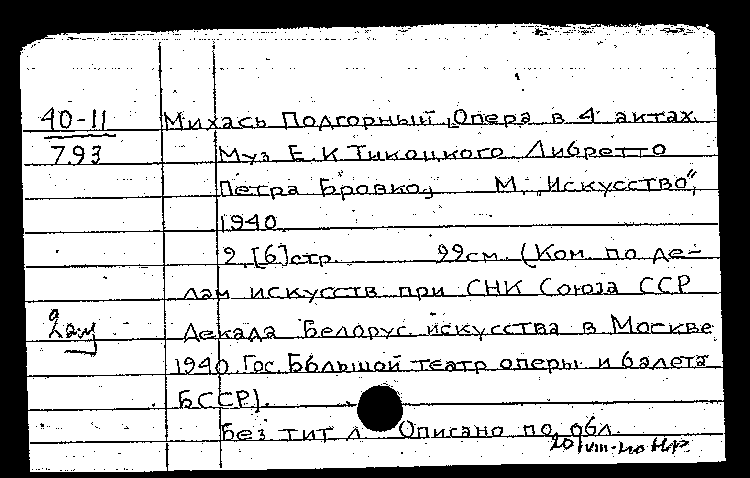 40-11 Михась Подгорный. Опера в 4 актах.
793 Муз Е. К Тикоцкого Либретто
Петра Бровко, М. „Искусство",
1940.
2, [6] стр. 22см. (Ком. по де-
лам искусств при СНК Союза ССР
Декада Белорус. искусства в Москве
1940 Гос. Большой театр оперы и балета
БССР).
Без тит л Описано по обл.
20/VIII-40